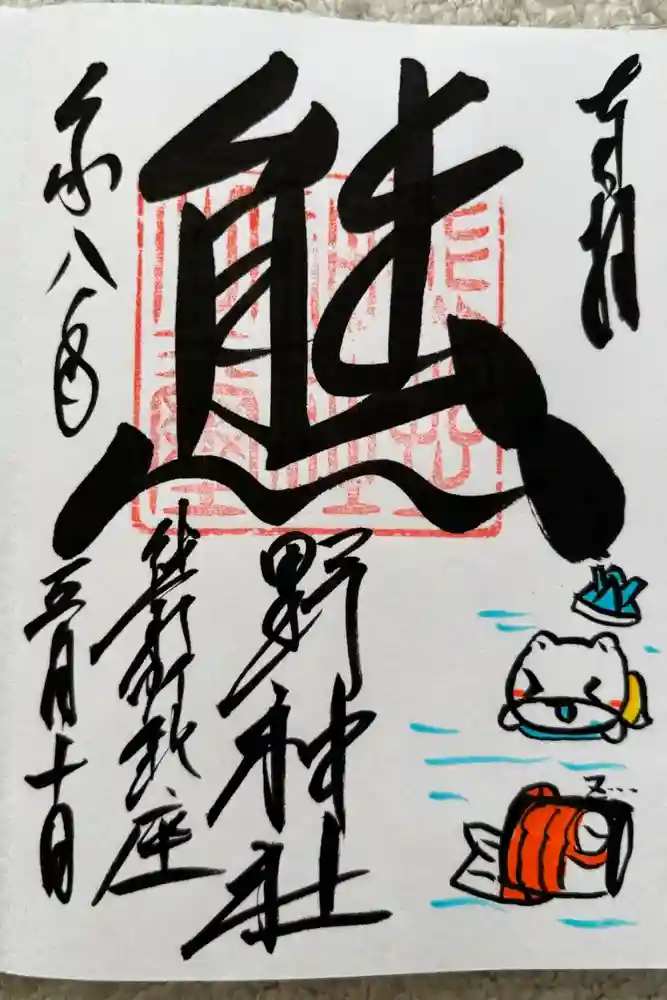 奉拝
熊野神社
熊野町鎮座
令和八年
五月十日
z...